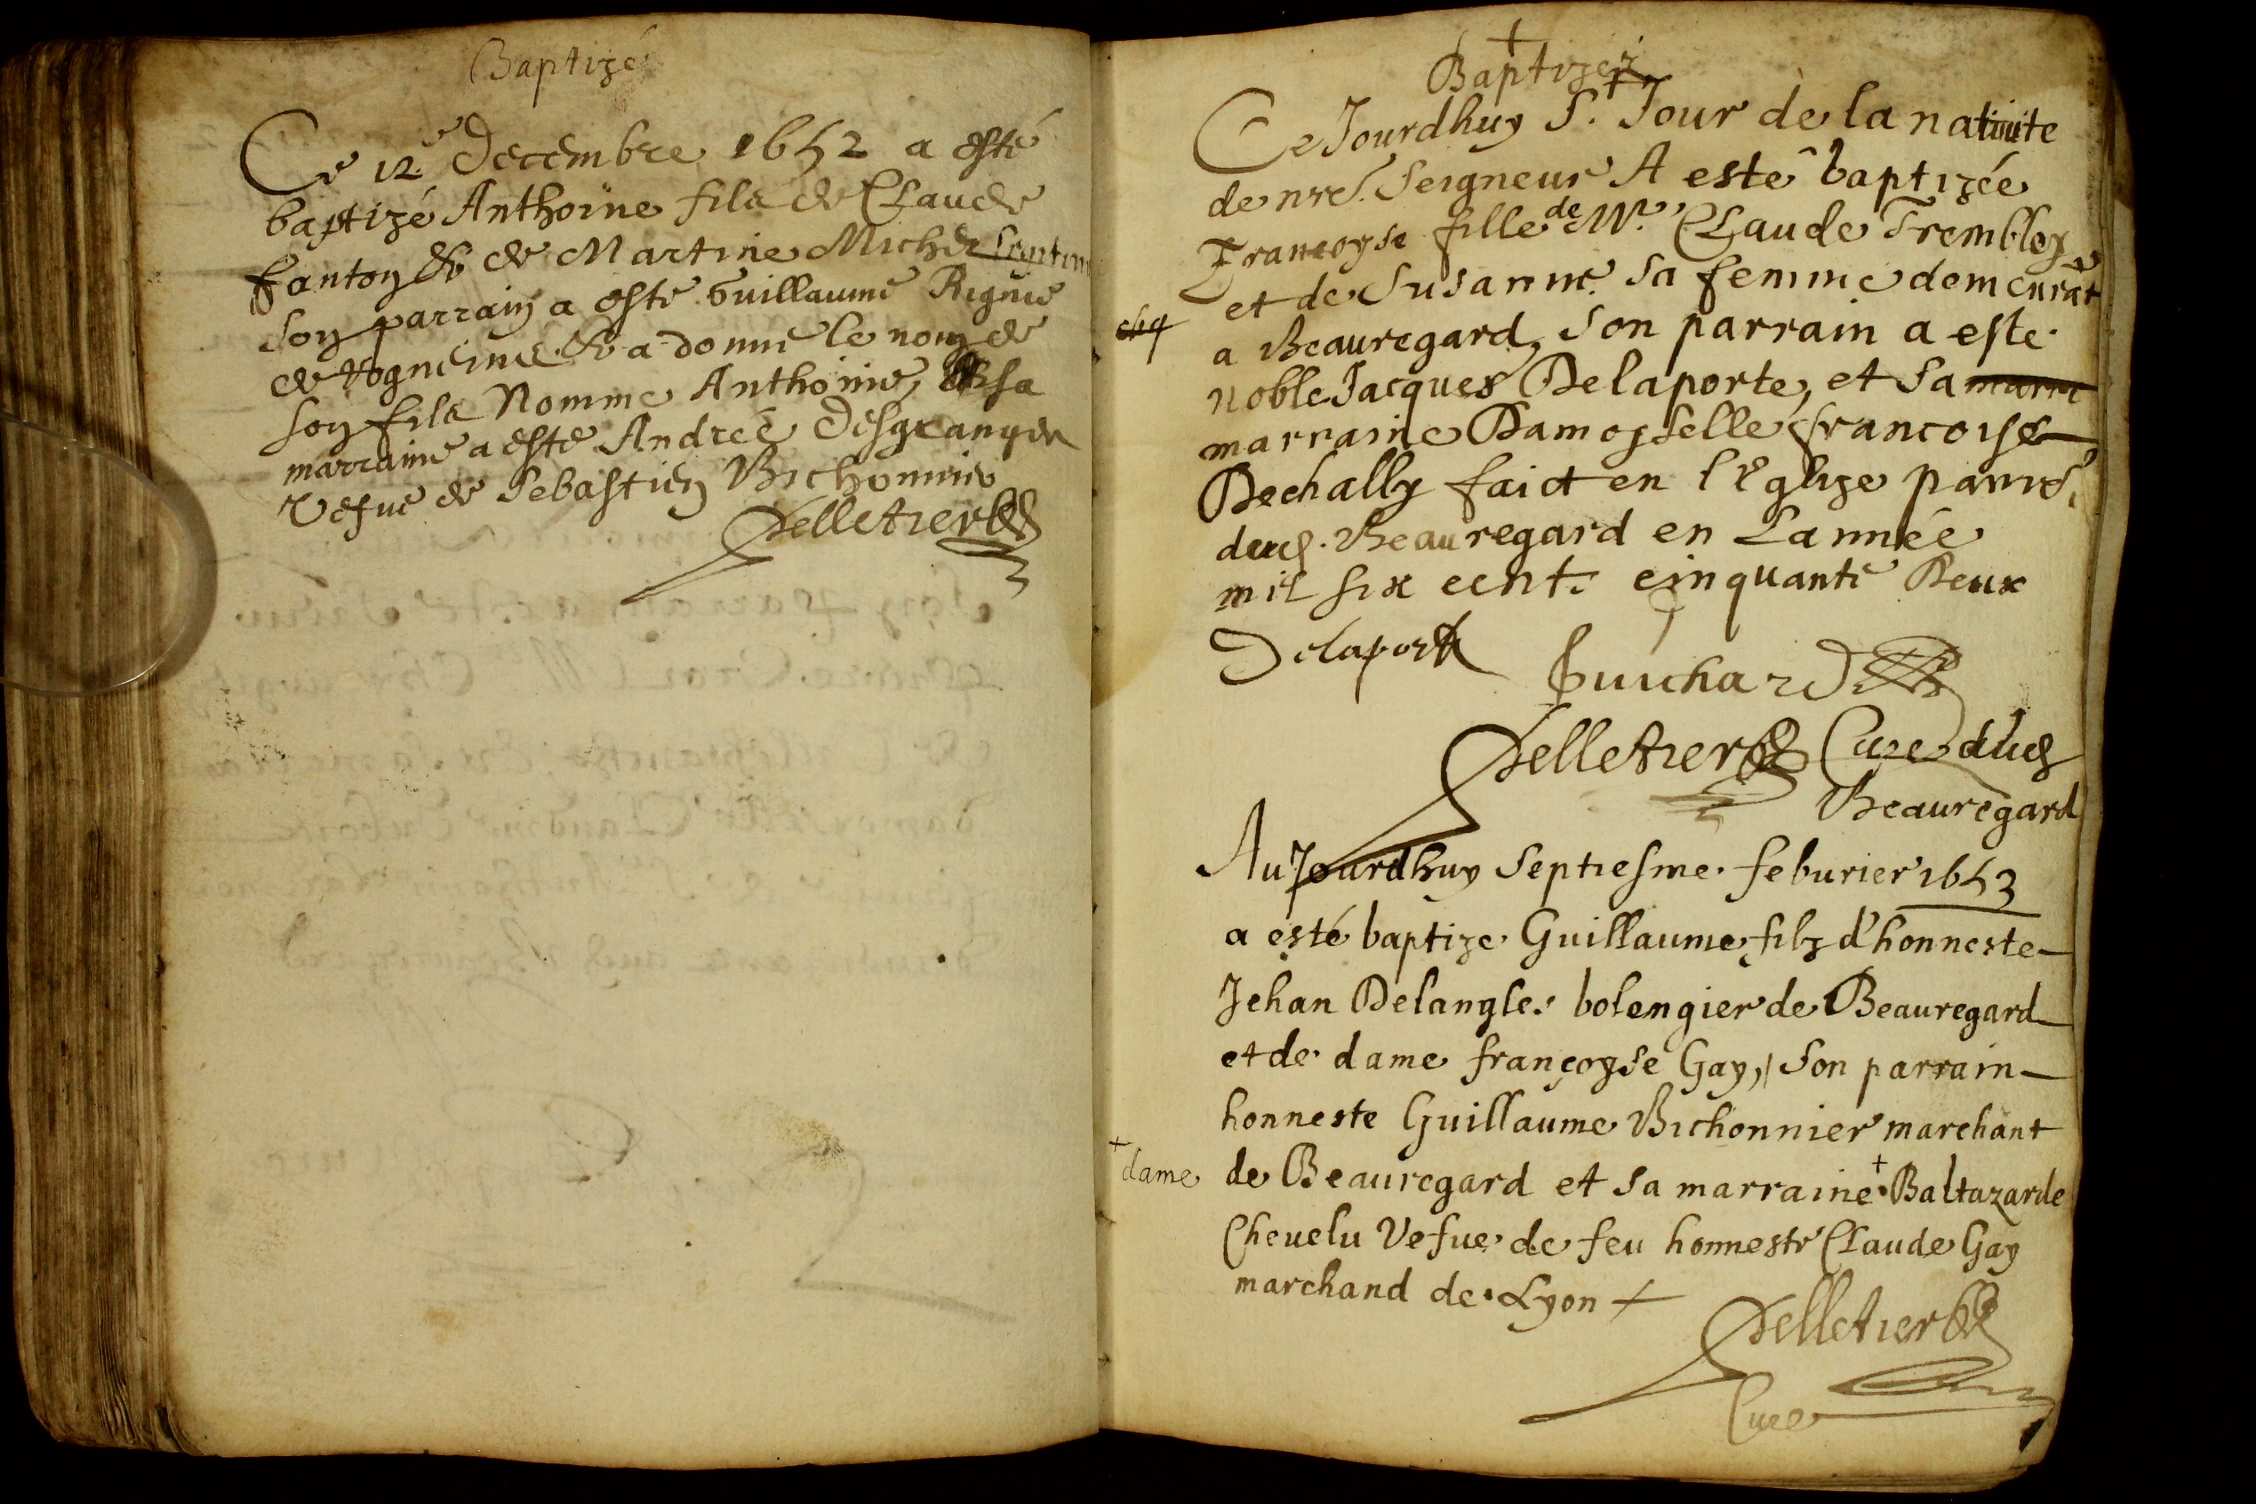 Baptizé
Ce 12.e Decembre 1652 a esté
baptizé Anthoine fils de Claude
fanton & de Martine Michel
son parrain a esté Guillaume
de & a donné le nom de
son fils Nomme Anthoine, & sa
marraine a esté Andreé Desgranges
Vefue de Sebastien Bichonnier
Pelletier
+
Baptizez
Ce Jourdhuy S.t Jour de la natiuite
de nre. Seigneur A esté baptizée
Francoyse fille de Mr. Claude Trembley
et de Susanne sa femme demeurāt
a Beauregard, Son parrain a esté
noble Jacques Delaporte, et sa marra
marraine Damoyselle francoise
Dechally faict en l'Eglize parro.
dud. Beauregard en Lannée
mil six cent cinquante Deux
Delaporte
Guichard
Pelletier Cure dud
Beauregard
AuJourdhuy Septiesme feburier 1653
a esté baptize Guillaume filz d'honneste
Jehan Delangle bolengier de Beauregard
et de dame françoyse Gay, Son parrain
honneste Guillaume Bichonnier marchant
+ dame
de Beauregard et sa marraine + Baltazarde
Cheuelu Vefue de feu honneste Claude Gay
marchand de Lyon
Pelletier
Cure